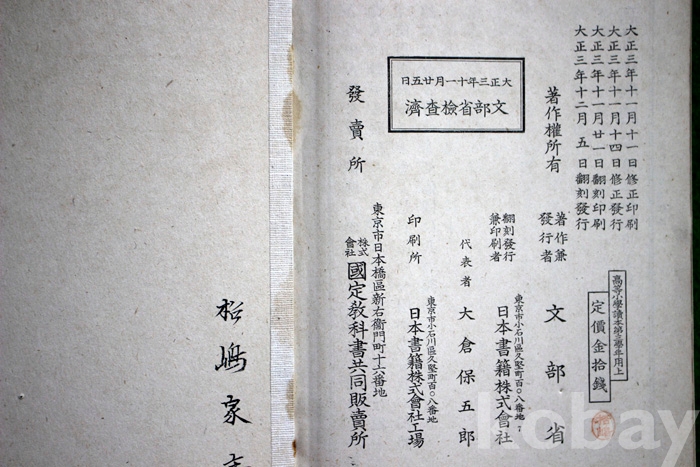 大正三年十一月十一日修正印刷
大正三年十一月十四日修正發行
大正三年十一月廿一日翻刻印刷
大正三年十二月五日翻刻發行
高等小學讀本第三學年用上
定價金拾錢
著作權所有
著作兼
發行者
文部省
翻刻發行
兼印刷者
東京市小石川區久堅町百〇八番地
日本書籍株式會社
代表者
大倉保五郎
印刷所
東京市小石川區久堅町百〇八番地
日本書籍株式會社工場
大正三年十一月廿五日
文部省檢查濟
發賣所
東京市日本橋區新右衞門町十六番地
株式
會社
國定敎科書共同販賣所
松嶋家
kobay